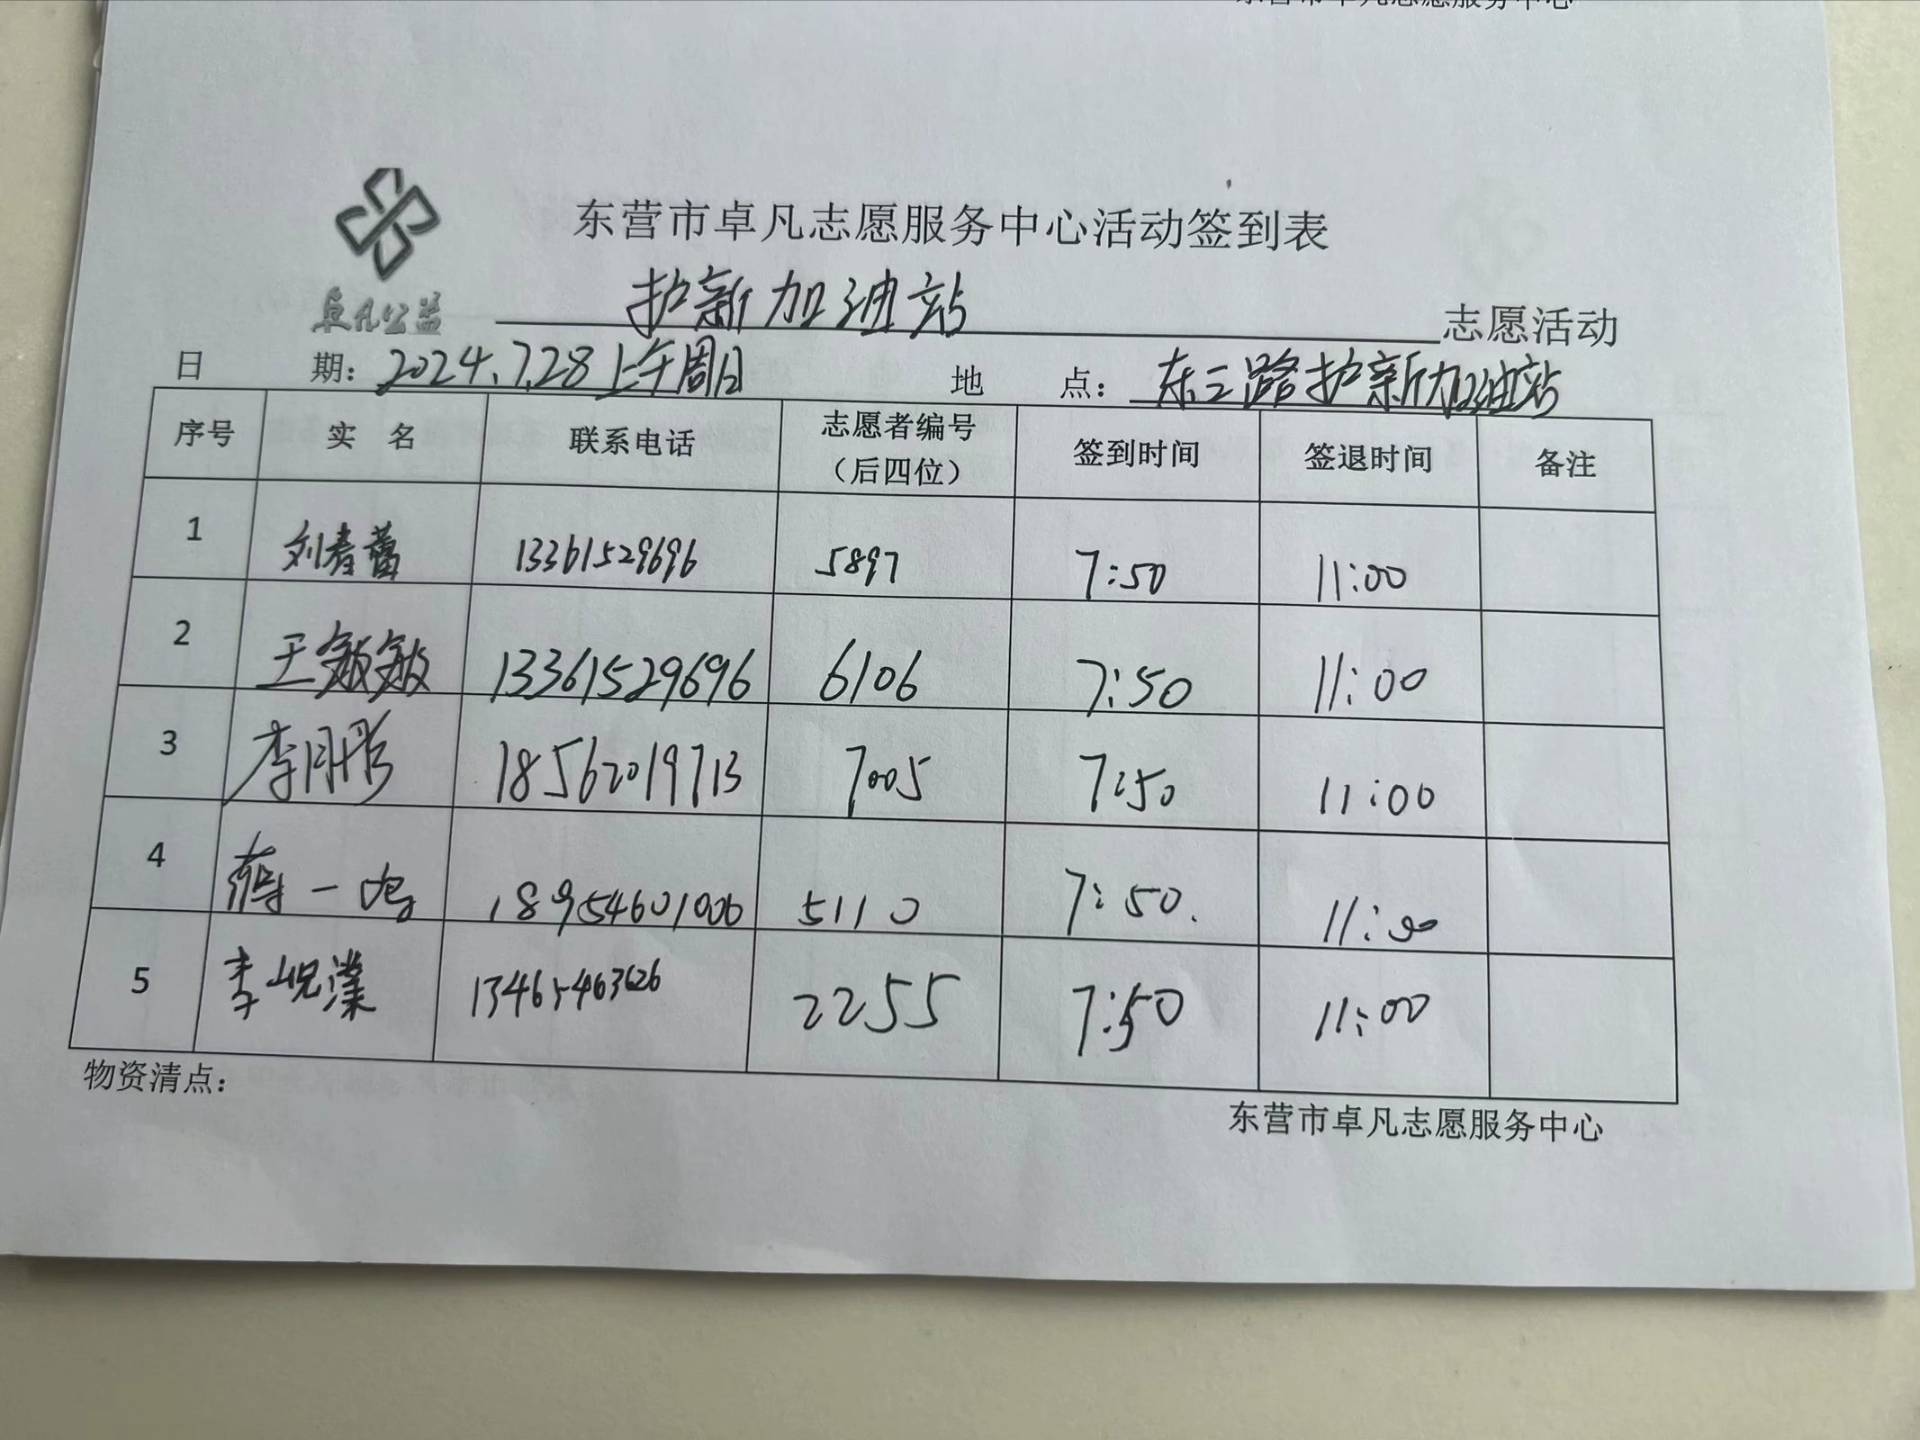 东营市卓凡志愿服务中心
东营市卓凡志愿服务中心活动签到表
卓凡公益
护新加油站 志愿活动
日 期：2024.7.28上午周日 地 点：东三路护新加油站
序号 实 名 联系电话 志愿者编号（后四位） 签到时间 签退时间 备注
1 刘春蕾 13361529696 5897 7:50 11:00
2 王敏敏 13361529696 6106 7:50 11:00
3 李月彤 18562019713 7005 7:50 11:00
4 蒋一鸣 18954601006 5110 7:50. 11:00
5 李岘潆 13465463626 2255 7:50 11:00
物资清点：
东营市卓凡志愿服务中心